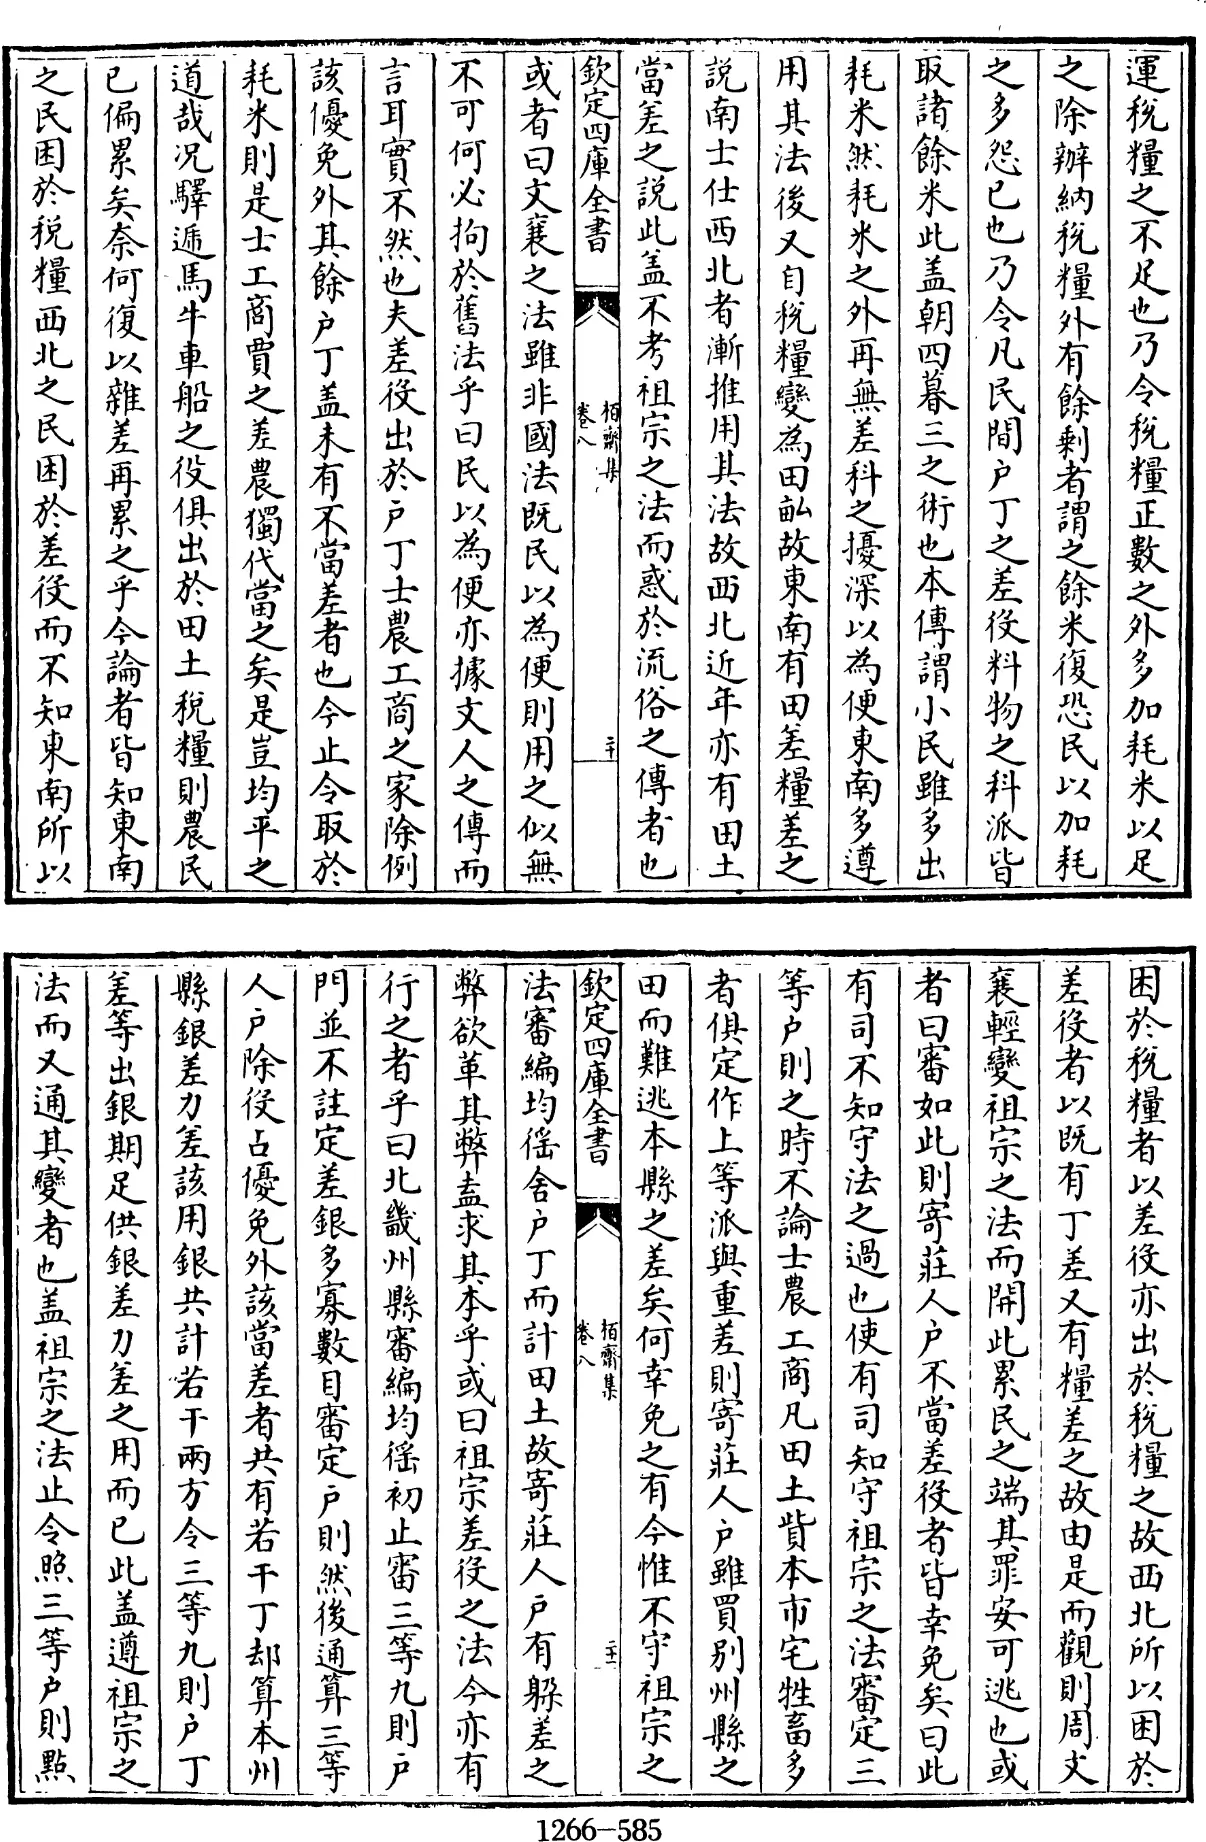 運税糧之不足也乃令税糧正數之外多加耗米以足
之除辦納税糧外有餘剩者謂之餘米復恐民以加耗
之多怨已也乃令凡民間户丁之差役料物之科派皆
取諸餘米此盖朝四暮三之術也本傳謂小民雖多出
耗米然耗米之外再無差科之擾深以為便東南多遵
用其法後又自税糧變為田畝故東南有田差糧差之
說南士仕西北者漸推用其法故西北近年亦有田土
當差之說此盖不考祖宗之法而惑於流俗之傳者也
欽定四庫全書
栢齋集
卷八
二十
或者曰文襄之法雖非國法既民以為便則用之似無
不可何必拘於舊法乎曰民以為便亦據文人之傳而
言耳實不然也夫差役出於户丁士農工商之家除例
該優免外其餘户丁盖未有不當差者也今止令取於
耗米則是士工商賈之差農獨代當之矣是豈均平之
道哉況驛遞馬牛車船之役俱出於田土税糧則農民
已偏累矣奈何復以雜差再累之乎今論者皆知東南
之民困於税糧西北之民困於差役而不知東南所以
困於税糧者以差役亦出於税糧之故西北所以困於
差役者以既有丁差又有糧差之故由是而觀則周文
襄輕變祖宗之法而開此累民之端其罪安可逃也或
者曰審如此則寄莊人户不當差役者皆幸免矣曰此
有司不知守法之過也使有司知守祖宗之法審定三
等户則之時不論士農工商凡田土貲本市宅牲畜多
者俱定作上等派與重差則寄莊人户雖買别州縣之
田而難逃本縣之差矣何幸免之有今惟不守祖宗之
欽定四庫全書
栢齋集
卷八
二十一
法審編均徭舍户丁而計田土故寄莊人户有躱差之
弊欲革其弊盍求其本乎或曰祖宗差役之法今亦有
行之者乎曰北畿州縣審編均徭初止審三等九則户
門並不註定差銀多寡數目審定户則然後通算三等
人户除役占優免外該當差者共有若干丁却算本州
縣銀差力差該用銀共計若干兩方令三等九則户丁
差等出銀期足供銀差力差之用而已此盖遵祖宗之
法而又通其變者也盖祖宗之法止令照三等户則㸃
1266—585